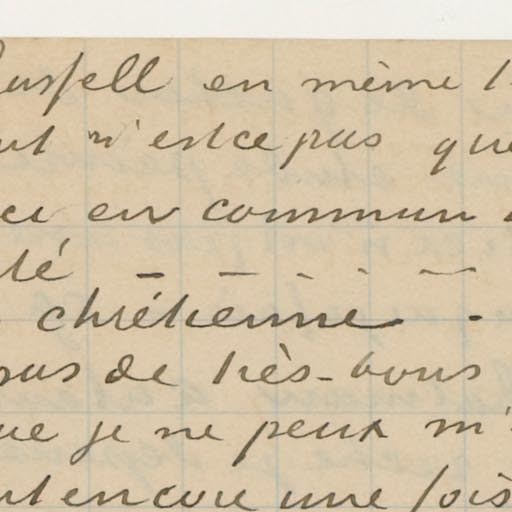 en même
n'est ce pas que
en commun
té - - - - -
chrétienne -
pas de très-bons
que je ne peux m'
encore une fois